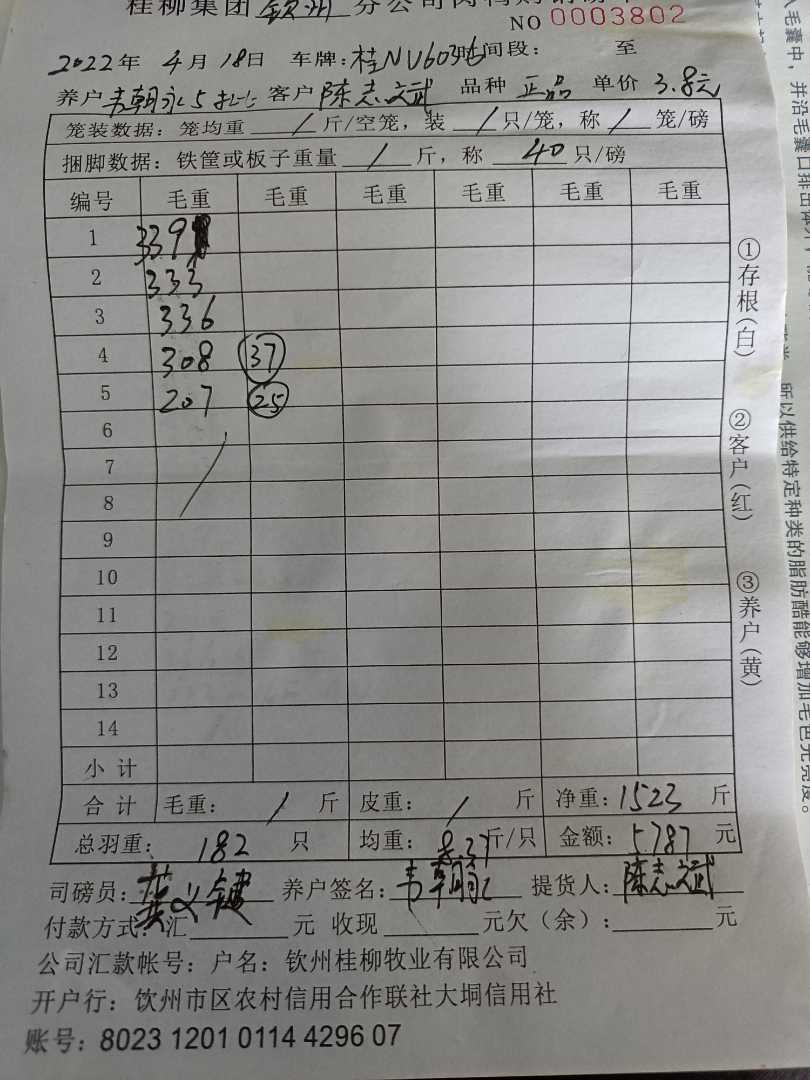 桂柳集团 钦州 分公司肉鸭购销磅单
NO 0003802
2022年 4月 18日 车牌：桂NU603 时间段： 至
养户 韦朝永5批 客户 陈志斌 品种 正品 单价 3.8元
笼装数据：笼均重 / 斤/空笼，装 / 只/笼，称 / 笼/磅
捆脚数据：铁筐或板子重量 / 斤，称 40 只/磅
编号 毛重 毛重 毛重 毛重 毛重 毛重
1 339
2 333
3 336
4 308 37
5 207 25
6
7
8
9
10
11
12
13
14
小计
合计 毛重： / 斤 皮重： / 斤 净重：1523 斤
总羽重： 182 只 均重： 8.37 斤/只 金额： 5787 元
司磅员：黄义健 养户签名：韦朝永 提货人：陈志斌
付款方式：汇 元 收现 元欠（余）： 元
公司汇款帐号：户名：钦州桂柳牧业有限公司
开户行：钦州市区农村信用合作联社大垌信用社
账号：8023 1201 0114 4296 07
①存根（白）
②客户（红）
③养户（黄）
入毛囊中，并沿毛囊口排出体外，
所以供给特定种类的脂肪酸能够增加毛色光亮度。